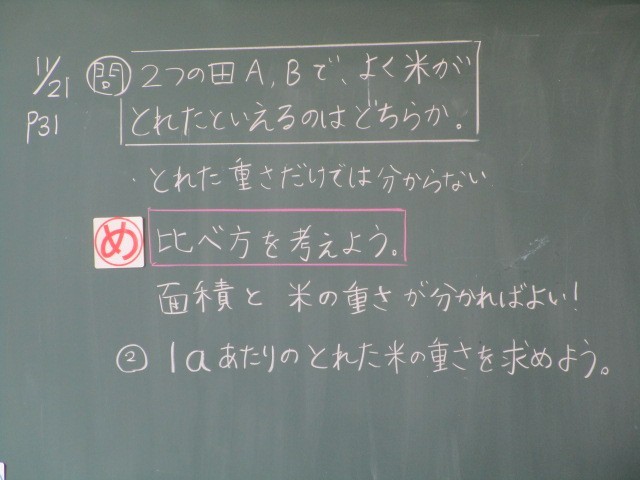 11/21 問 2つの田A,Bで、よく米が
P31 とれたといえるのはどちらか。
・とれた重さだけでは分からない
め 比べ方を考えよう。
面積と 米の重さが分かればよい!
② 1aあたりのとれた米の重さを求めよう。